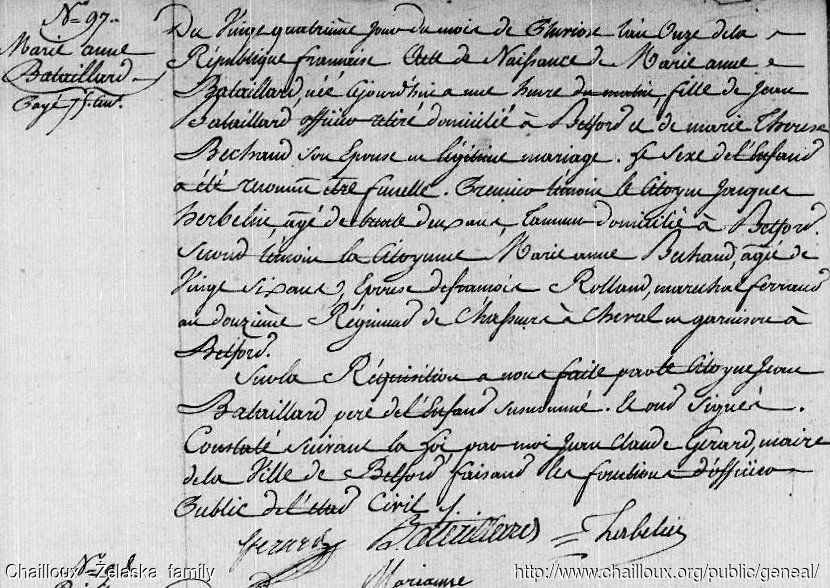 No 97.
Marie anne
Bataillard
Du Vingt quatrième jour du mois de Pluviose l'an Onze de la
République française Acte de Naissance de Marie anne
Bataillard, née Cejourd'hui a une heure du matin, fille de Jean
Bataillard officier retiré domicilié à Belford et de marie Therese
Bechaud Son Epouse en légitime mariage. Le Sexe de l'Enfand
a été reconnu être femelle. Premier témoin le Citoyen Jacques
herbelin, âgé de trente deux ans, Tanneur domicilié à Belford.
Second témoin la Citoyenne Marie anne Bechaud, âgée de
Vingt Six ans, Epouse de françois Rolland, marechal ferrand
au douzième Régimend de Chasseurs à Cheval en garnison à
Belford.
Sur la Réquisition a nous faite par le Citoyen Jean
Bataillard pere de l'Enfand susnommé. Et ond Signés.
Constaté suivant la Loi par moi Jean Claude Gerard, maire
de la Ville de Belford, faisand les fonctions d'officier
Public de l'étad Civil.
Gerard Therbelin
No 98
Marianne
Chailloux Zelaska family
http://www.chailloux.org/public/geneal/